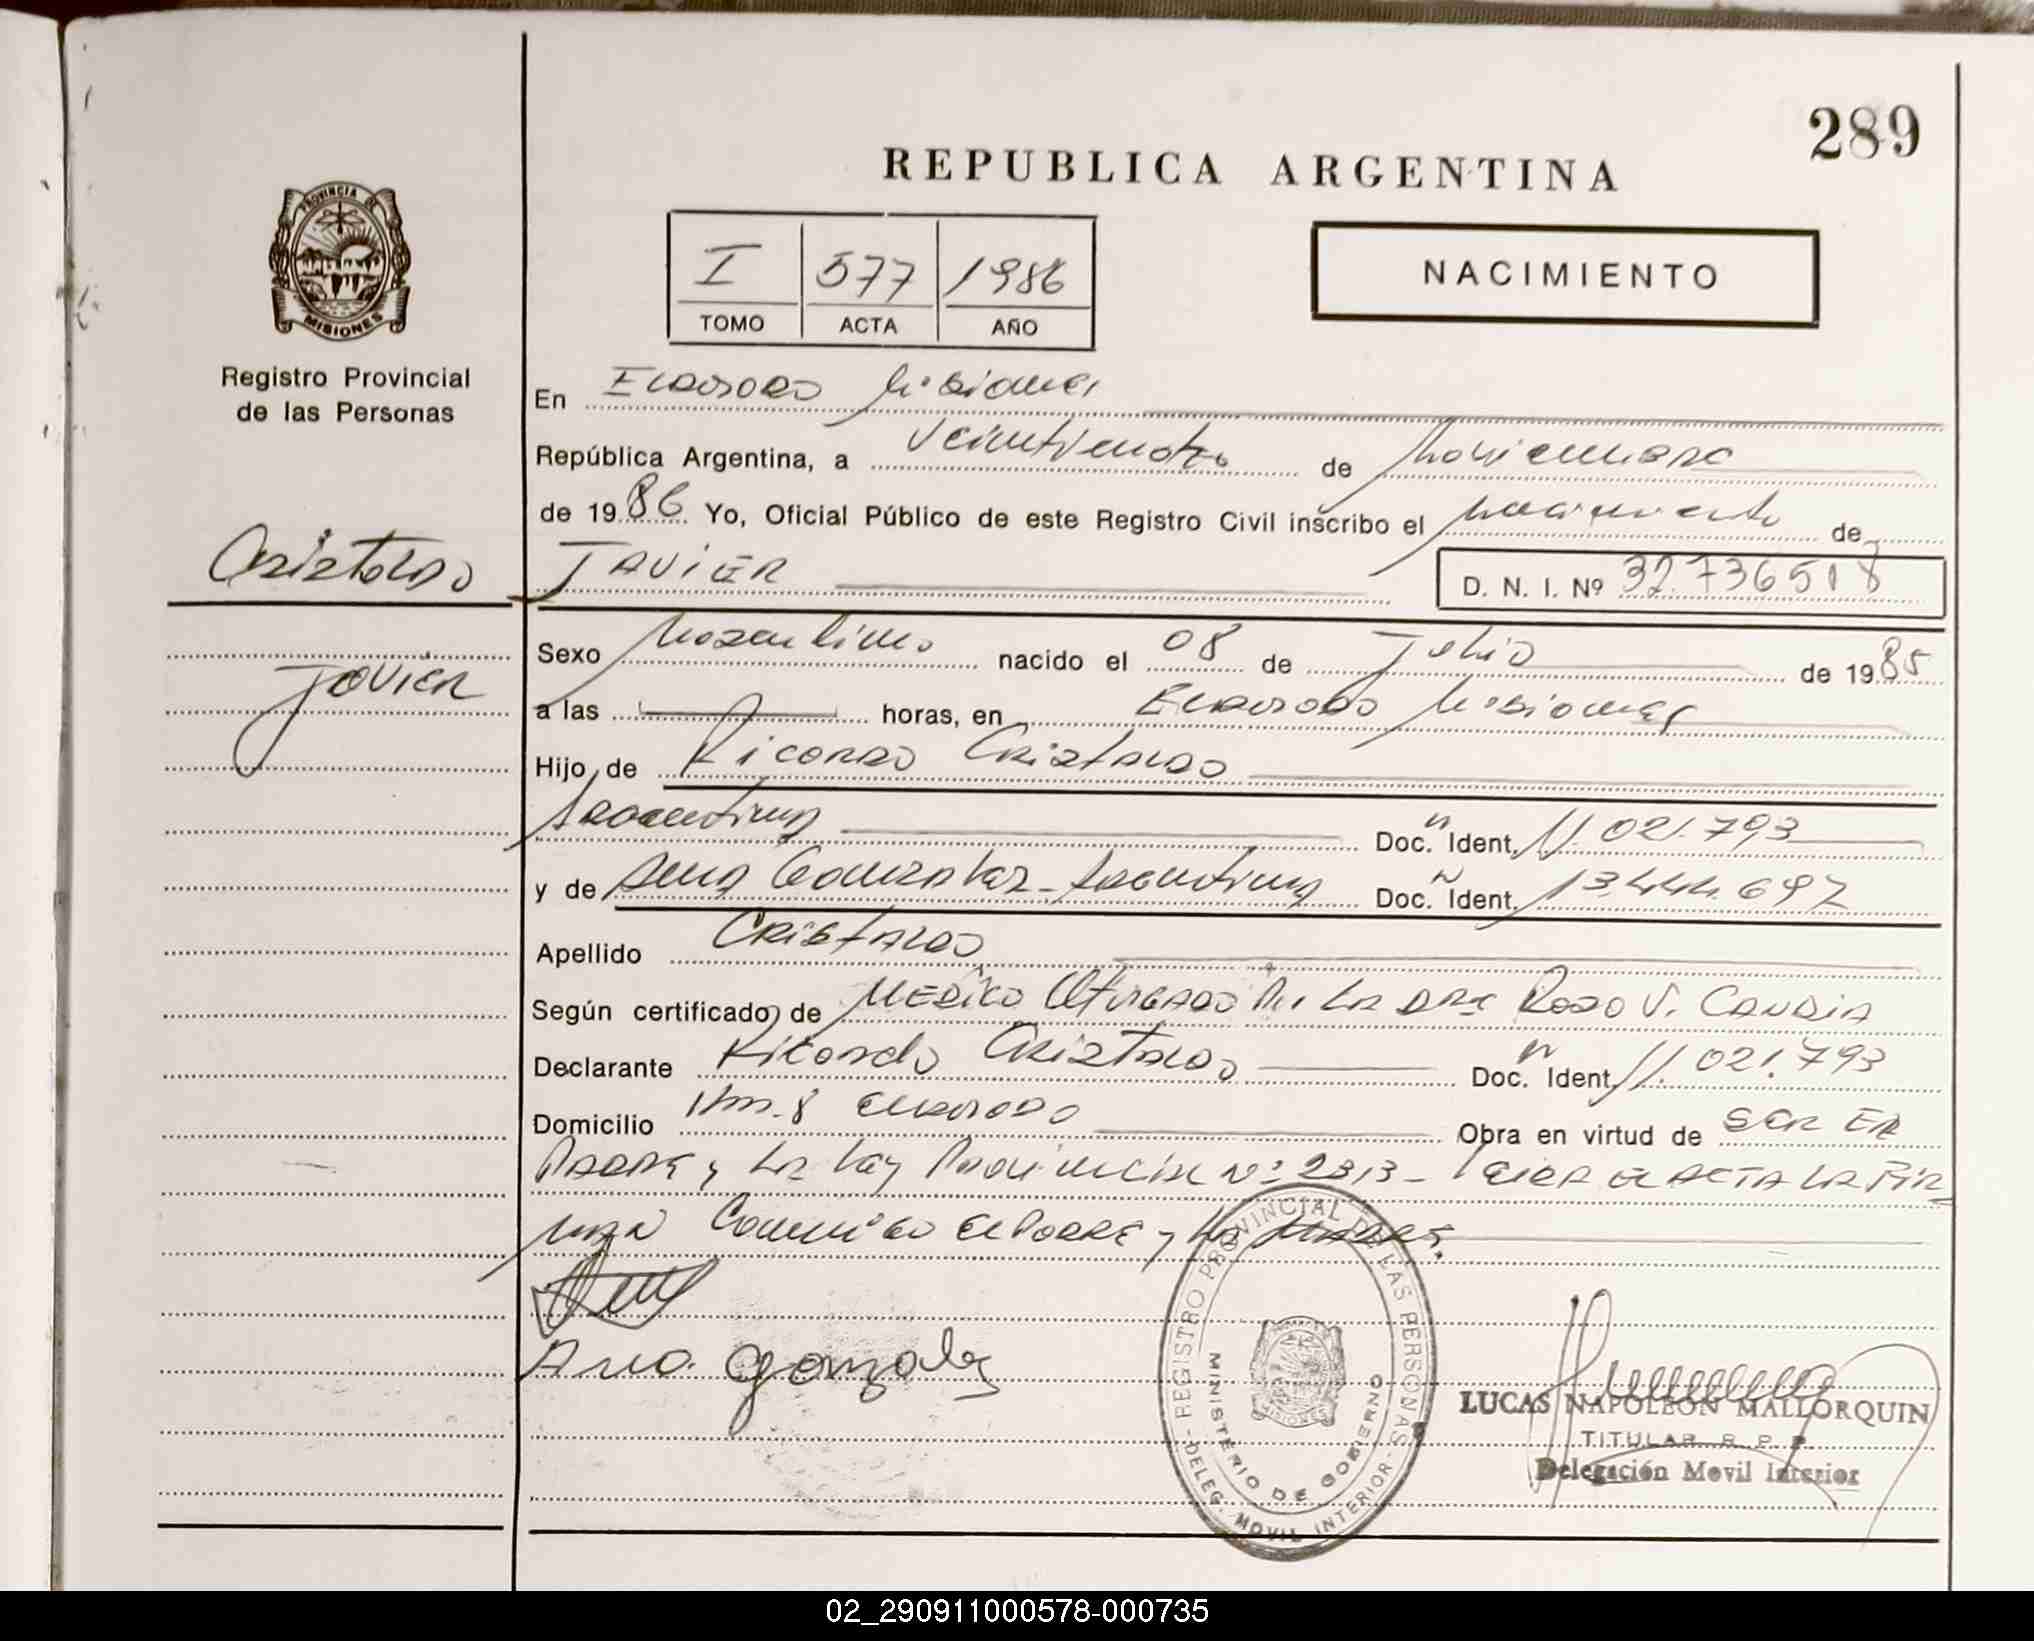 289
REPUBLICA ARGENTINA
PROVINCIA DE
MISIONES
I 577 1986
TOMO ACTA AÑO
NACIMIENTO
Registro Provincial
de las Personas
En ELDORADO Misiones
República Argentina, a veintiocho de Noviembre
de 1986 Yo, Oficial Público de este Registro Civil inscribo el nacimiento de
Cristaldo
JAVIER
D. N. I. Nº 32.736518
Javier
Sexo Masculino nacido el 08 de Julio de 1985
a las horas, en ELDORADO Misiones
Hijo de Ricardo Cristaldo
Argentina Doc. N Ident. 11.021.793
y de Ana Gonzalez - Argentina Doc. N Ident. 13.444.697
Apellido CRISTALDO
Según certificado de MEDICO Otorgado Por LA DRA Rosa V. CANDIA
Declarante Ricardo Cristaldo Doc. N Ident. 11.021.793
Domicilio Km. 8 Eldorado Obra en virtud de SER EL
PADRE y LA Ley Provincial Nº 2313 - Leida el ACTA LA FIR
MAN Conmigo el PADRE y LA MADRE.
Ana gonzalez
REGISTRO PROVINCIAL DE LAS PERSONAS
MINISTERIO DE GOBIERNO
DELEG. MOVIL INTERIOR
MISIONES
LUCAS NAPOLEON MALLORQUIN
TITULAR R. P. P.
Delegación Movil Interior
02_290911000578-000735